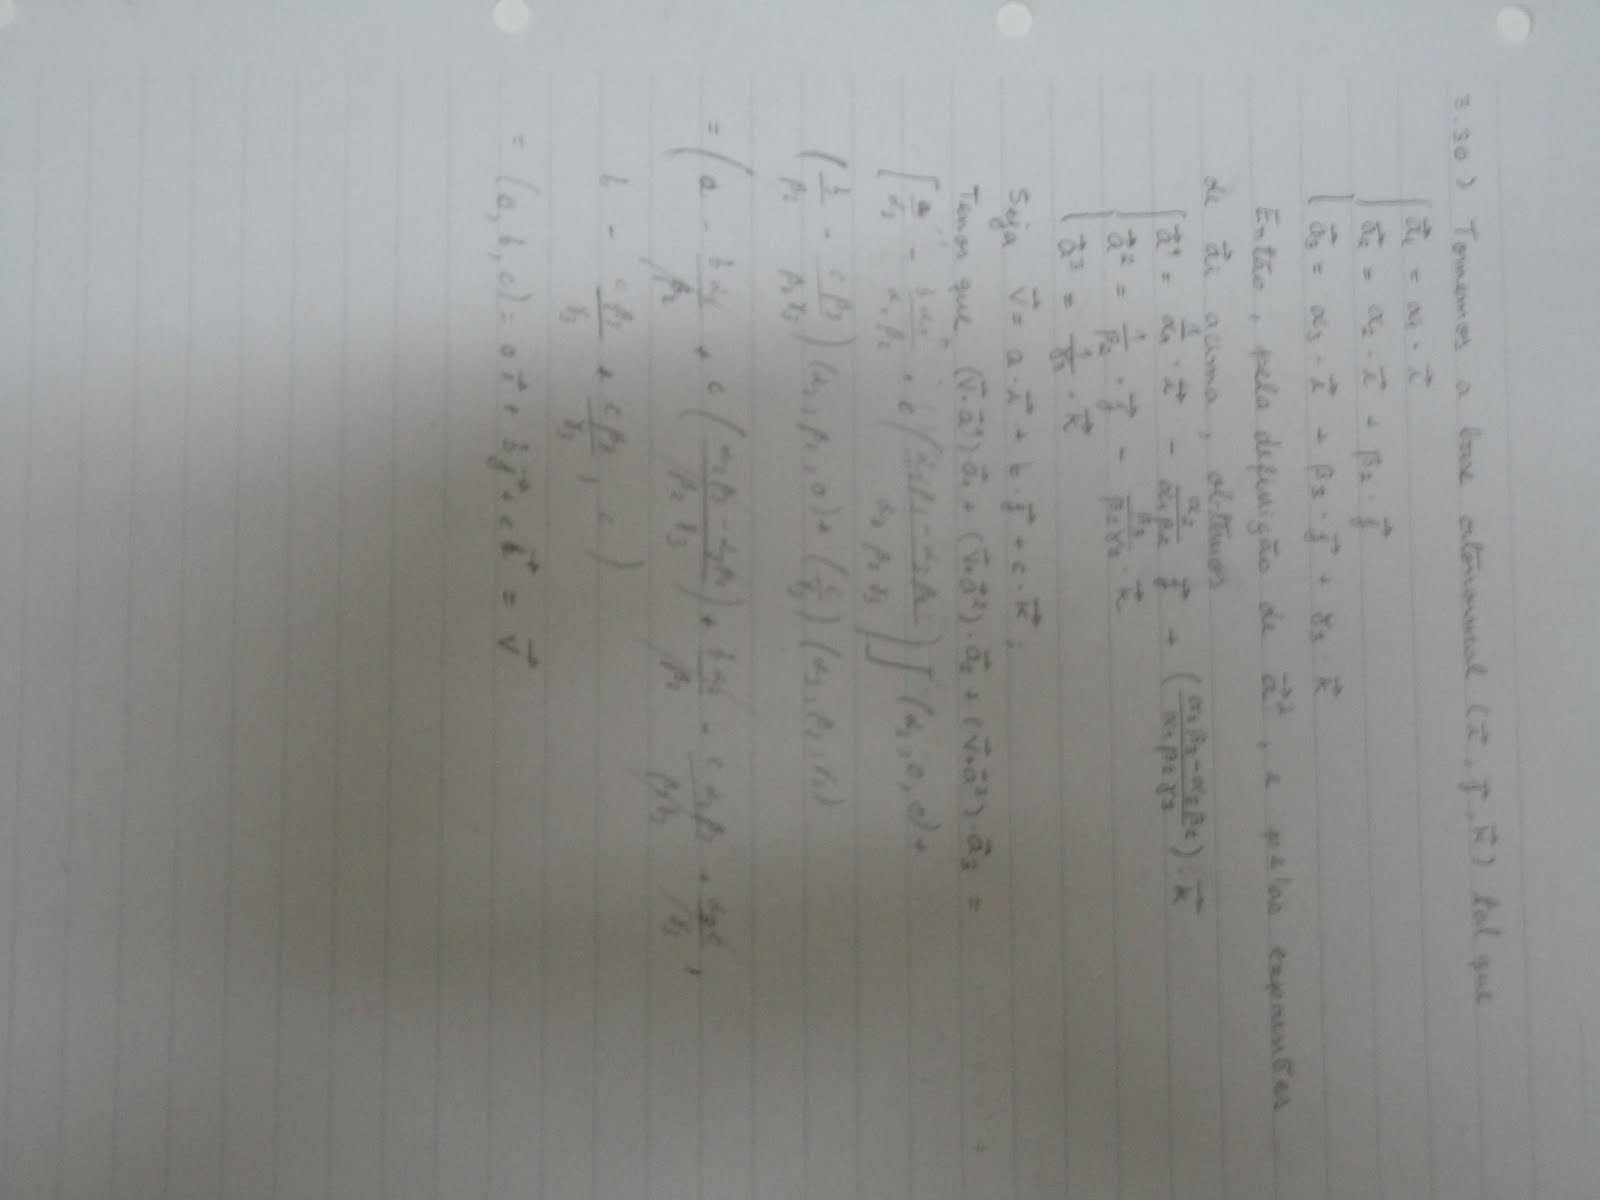 3.30) Tomemos a base ortonormal (i⃗, j⃗, k⃗) tal que
{ a⃗₁ = α₁ · i⃗
a⃗₂ = α₂ · i⃗ + β₂ · j⃗
a⃗₃ = α₃ · i⃗ + β₃ · j⃗ + γ₃ · k⃗
Então, pela definição de a⃗², e pelas expressões
de a⃗i acima, obtemos
{ a⃗¹ = 1/α₁ · i⃗ - α₂/(α₁β₂) j⃗ + ((α₂β₃ - α₃β₂)/(α₁β₂γ₃)) · k⃗
a⃗² = 1/β₂ · j⃗ - β₃/(β₂γ₃) · k⃗
a⃗³ = 1/γ₃ · k⃗
Seja v⃗ = a · i⃗ + b · j⃗ + c · k⃗;
Temos que, (v⃗·a⃗¹) a⃗₁ + (v⃗·a⃗²) · a⃗₂ + (v⃗·a⃗³) · a⃗₃ =
[a/α₁ - bα₂/(α₁β₂) + c((α₂β₃ - α₃β₂)/(α₁β₂γ₃))] (α₁, 0, 0) +
(b/β₂ - cβ₃/(β₂γ₃)) (α₂, β₂, 0) + (c/γ₃) (α₃, β₃, γ₃)
= (a - bα₂/β₂ + c((α₂β₃ - α₃β₂)/(β₂γ₃)) + bα₂/β₂ - cα₂β₃/(β₂γ₃) + α₃c/γ₃,
b - cβ₃/γ₃ + cβ₃/γ₃, c)
= (a, b, c) = a i⃗ + b j⃗ + c k⃗ = v⃗